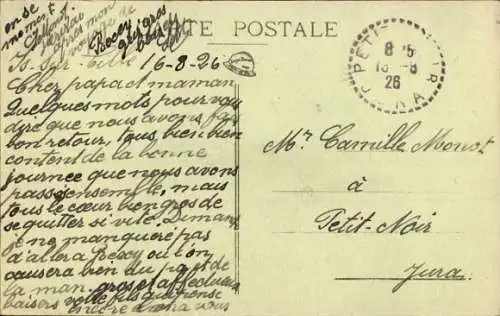 CARTE POSTALE
Is-sur-Tille 16-8-26
Cher papa et maman
Quelques mots pour vou
dire que nous avons fait
bon retour, tous, bien bien
content de la bonne
journee que nous avons
passé ensemble, mais
tous le cœur bien gros de
se quitter si vite. Dimanc
je ne manqueré pas
d'aller a Bexy ou l'on
causera bien du pa et de
la man. gros et affectueux
baisers votre fils qui pense
encore a vous
en se
moment
Bexy
gros
PETIT-NOIR
8 15
16-8
26
JURA
Mr Camille Monot
à
Petit-Noir
Jura